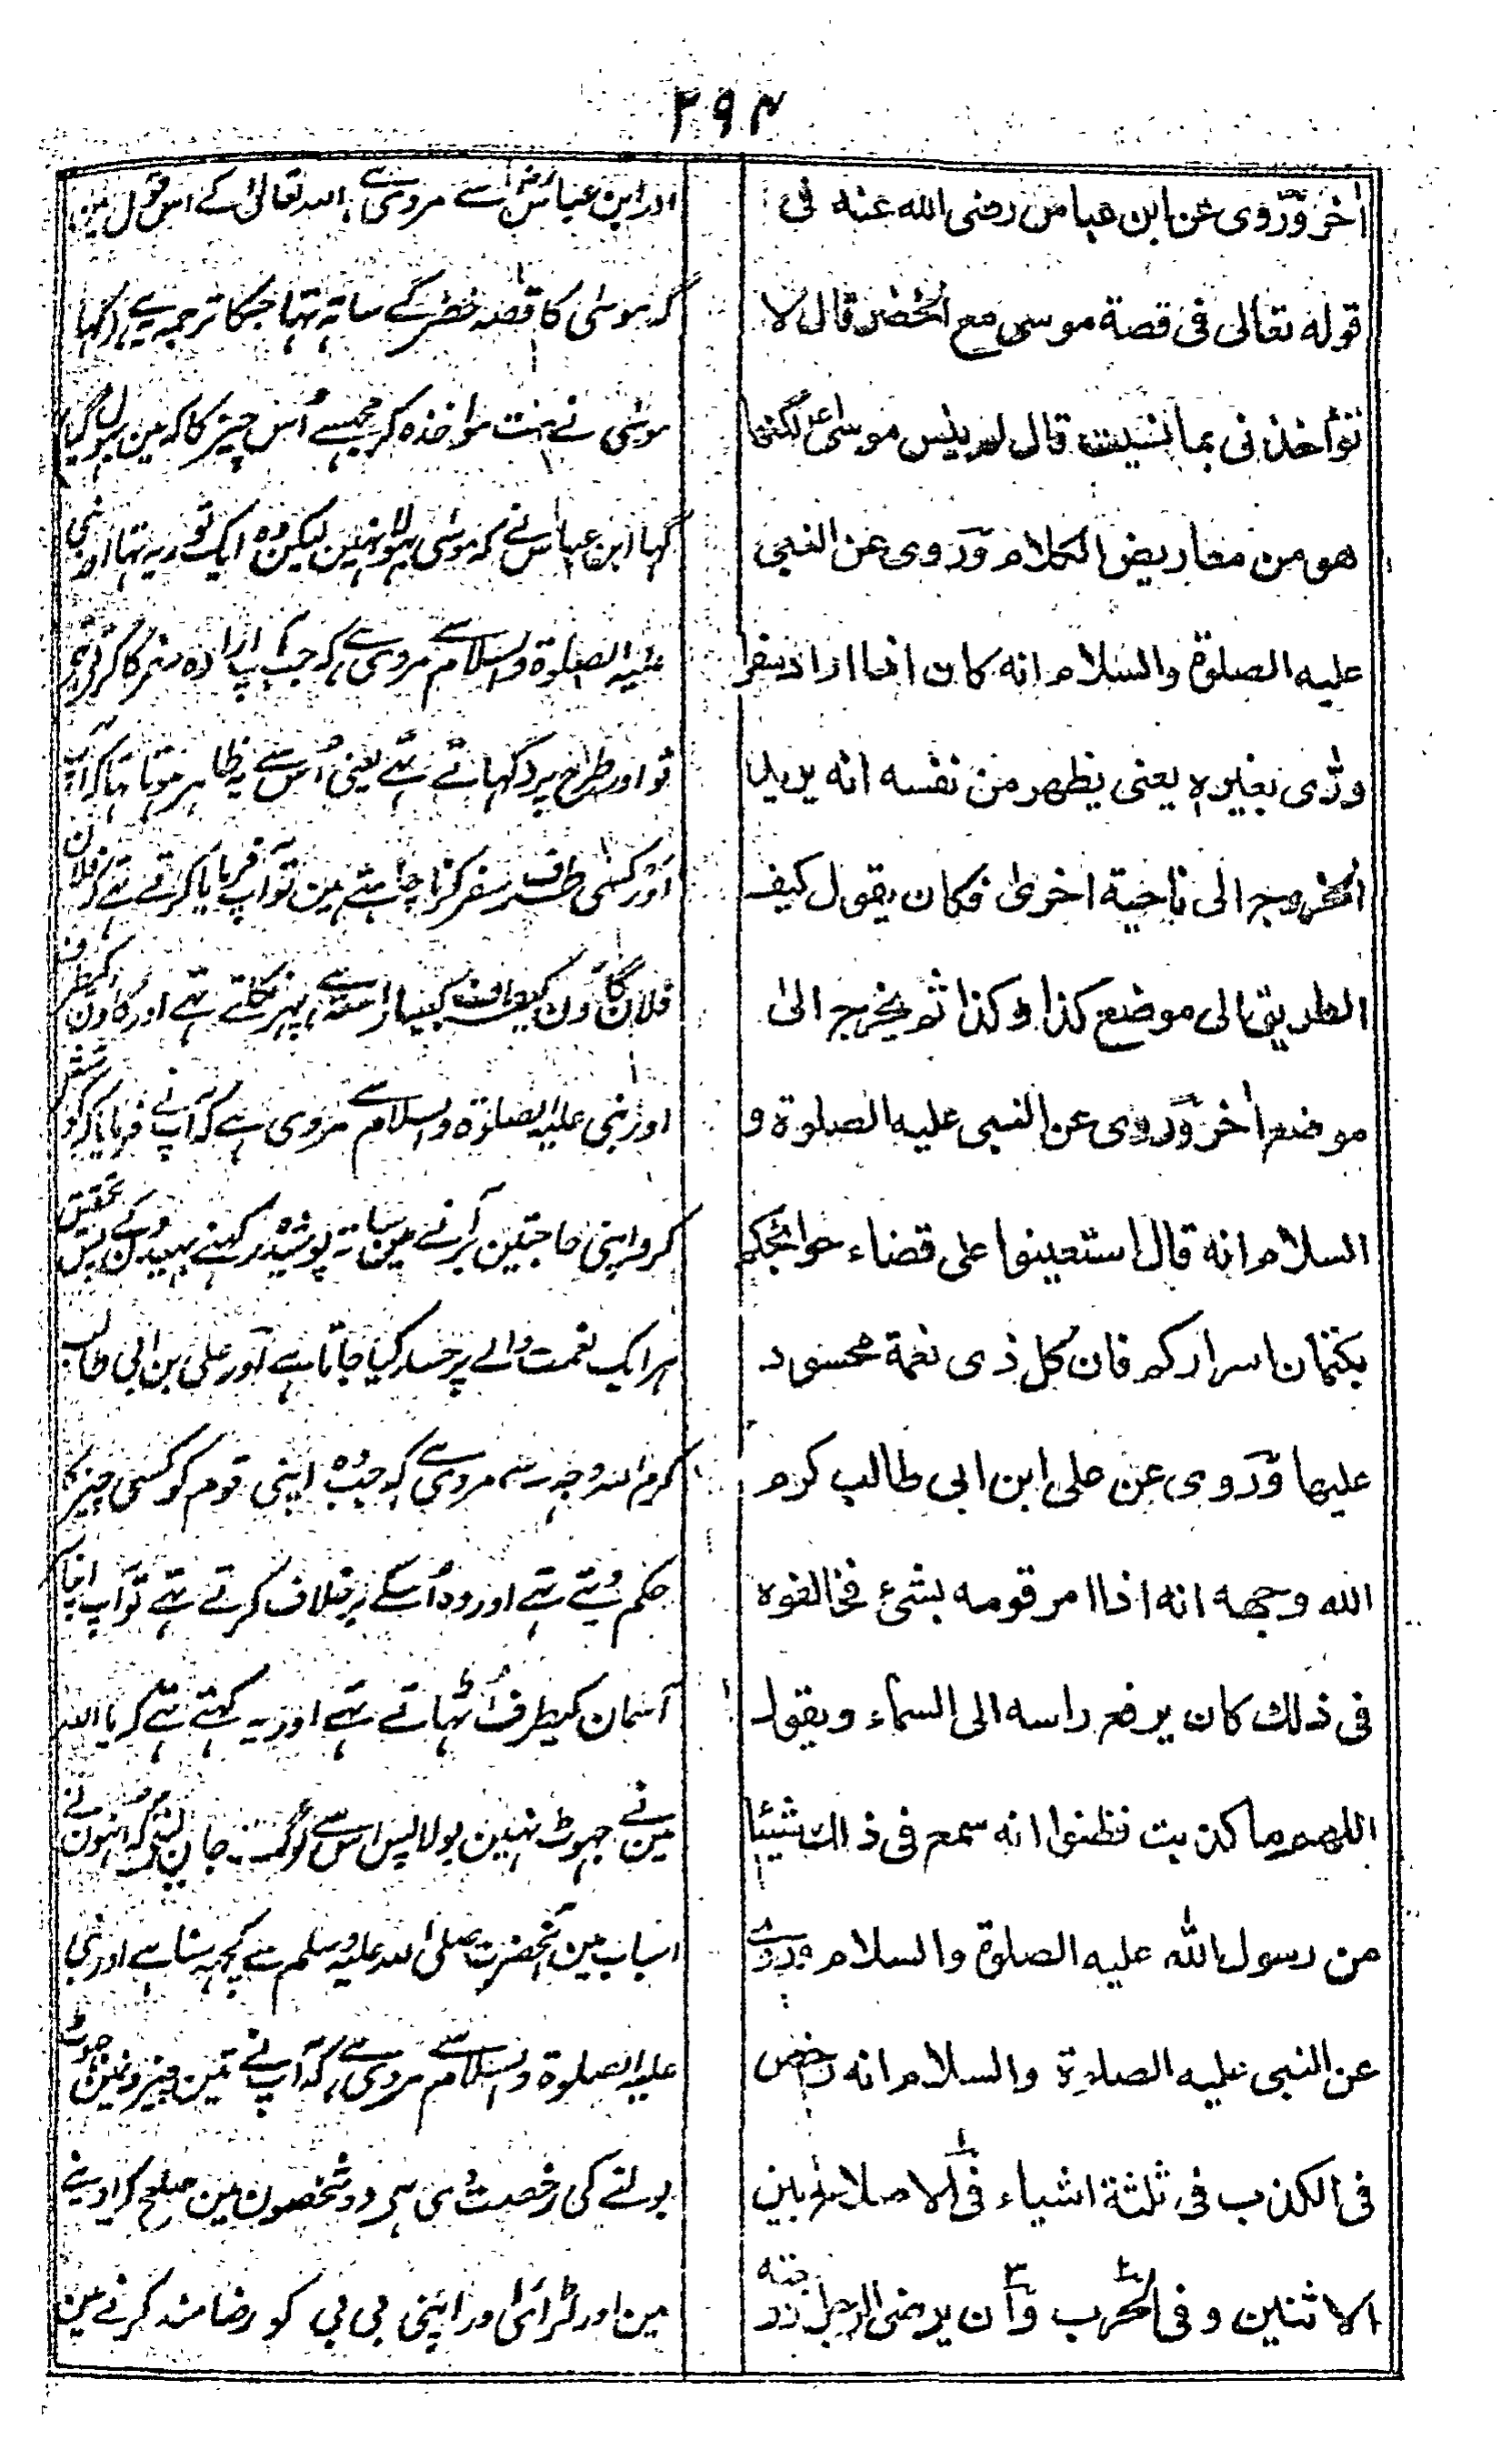 ۲۹۴
اخر وروى عن ابن عباس رضى الله عنه فى
قوله تعالى فى قصة موسى مع الخضر قال لا
تؤاخذنى بما نسيت قال لم ينس موسىٰ لكنها
هو من معاريض الكلام وروى عن النبى
عليه الصلوة والسلام انه كان اذا اراد سفرا
ورّى بغيره يعنى يظهر من نفسه انه يريد
الخروج الى ناحية اخرىٰ فكان يقول كيف
الطريق الى موضع كذا وكذا ثم يخرج الىٰ
موضع اٰخر وروى عن النبى عليه الصلوة و
السلام انه قال استعينوا على قضاء حوائجكم
بكتمان اسراركم فان كل ذى نعمة محسود
عليها وروى عن على ابن ابى طالب كرم
الله وجهه انه اذا امر قومه بشئ فخالفوه
فى ذلك كان يرفع راسه الى السماء ويقول
اللهم ما كذبت فظنوا انه سمع فى ذلك شيئا
من رسول الله عليه الصلوة والسلام وروى
عن النبى عليه الصلوة والسلام انه رخص
فى الكذب فى ثلثة اشياء فى الاصلاح بين
الاثنين و فى الحرب وان يرضى الرجل زوجته
اور ابن عباسؓ سے مروی ہے اللہ تعالیٰ کے اس قول مین
کہ موسٰی کا قصہ خضر کے ساتہ تہا جسکا ترجمہ یہ ہے کہا
موسٰی نے مت مواخذہ کر مجہسے اُس چیز کا کہ مین بہول گیا
کہا ابن عباس نے کہ موسٰی بہولا نہین لیکن وہ ایک توریہ تہا اور نبی
علیہ الصلوۃ والسلام سے مروی ہے کہ جب آپ ارادہ سفر کا کرتے تہے
تو اور طرح پر دکہاتے تہے یعنی اُس سے یہ ظاہر ہوتا تہا کہ آپ
اور کسی طرف سفر کرنا چاہتے ہین تو آپ فرمایا کرتے تہے کہ فلان
فلان گاؤن کیطرف کیسا راستہ ہے پہر نکلتے تہے اور گاؤن کیطرف
اور نبی علیہ الصلوۃ والسلام سے مروی ہے کہ آپ نے فرمایا کہ کوشش
کرو اپنی حاجتین بر آنے مین ساتہ پوشیدہ رکہنے بہیدون کے پس تحقیق
ہر ایک نعمت والے پر حسد کیا جاتا ہے اور علی بن ابی طالب
کرم اللہ وجہہ سے مروی ہے کہ جب وہ اپنی قوم کو کسی چیز کا
حکم دیتے تہے اور وہ اُسکے برخلاف کرتے تہے تو آپ اپنا سر
آسمان کیطرف اُٹہاتے تہے اور یہ کہتے تہے کہ یا اللہ
مین نے جہوٹ نہین بولا پس اس سے لوگ جان لیتے کہ انہون نے
اسباب مین آنحضرت صلی اللہ علیہ وسلم سے کچہہ سنا ہے اور نبی
علیہ الصلوۃ والسلام سے مروی ہے کہ آپ نے تین چیزونمین جہوٹ
بولنے کی رخصت دی ہے دو شخصون مین صلح کرا دینے
مین اور لڑائی اور اپنی بی بی کو رضامند کرنے مین